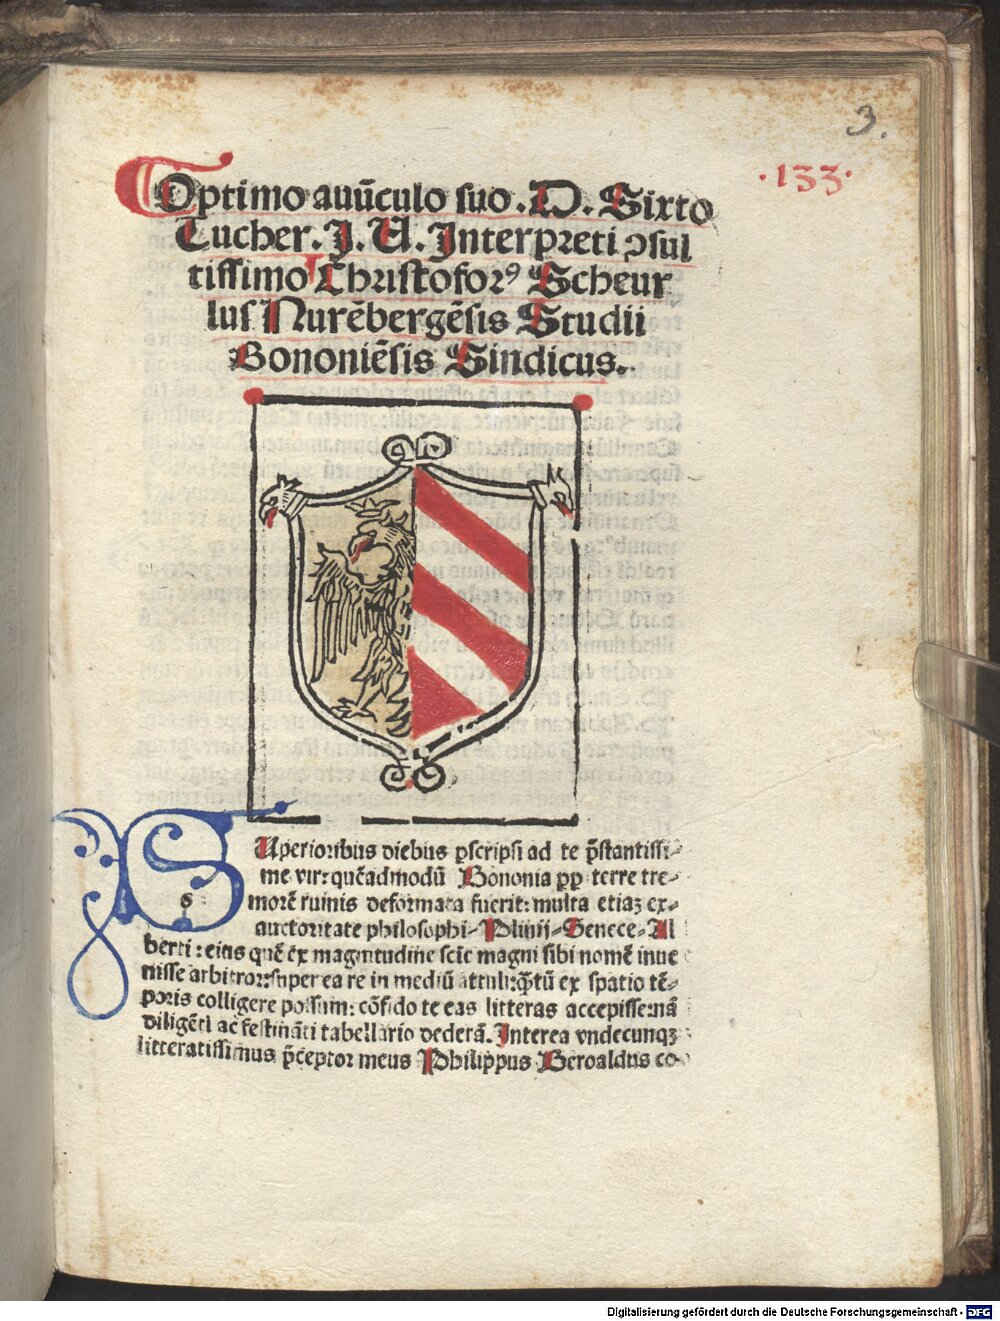 3.
·133·
Optimo avūculo suo. D. Sixto
Tucher. J. U. Interpreti ↄsul
tissimo Christoforꝰ Scheur
lus Nurēbergēsis Studii
Bononiēsis Sindicus.
Uperioribus diebus ꝑscripsi ad te p̄stantissi-
me vir: quēadmodū Bononia ꝓꝑ terre tre-
morē ruinis deformata fuerit: multa etiaꝫ ex-
auctoritate philosophi- Plinii- Senece- Al
berti: eius quē ex magnitudine scīe magni sibi nomē inue
nisse arbitror: super ea re in mediū attuli: qͣtū ex spatio tē-
poris colligere possum: cōfido te eas litteras accepisse: nā
diligēti ac festināti tabellario dederā. Interea vndecunqꝫ
litteratissimus p̄ceptor meus Philippus Beroaldus co-
s
Digitalisierung gefördert durch die Deutsche Forschungsgemeinschaft - DFG